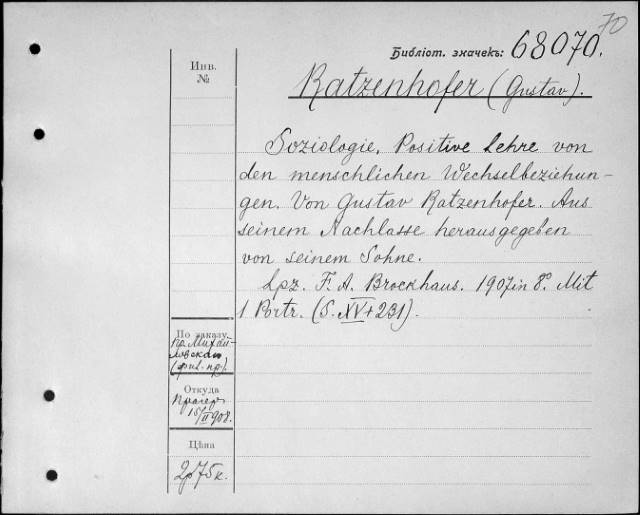 70
Библіот. значекъ: 68070.
Инв.
№
Ratzenhofer (Gustav).
Soziologie. Positive Lehre von
den menschlichen Wechselbeziehun-
gen. Von Gustav Ratzenhofer. Aus
seinem Nachlasse herausgegeben
von seinem Sohne.
Lpz. F. A. Brockhaus. 1907 in 8°. Mit
1 Portr. (S. XV+231).
По заказу
пр. Михай-
ловскаго
Откуда
Прагеръ
15/II 908.
Цѣна
2р 75к.